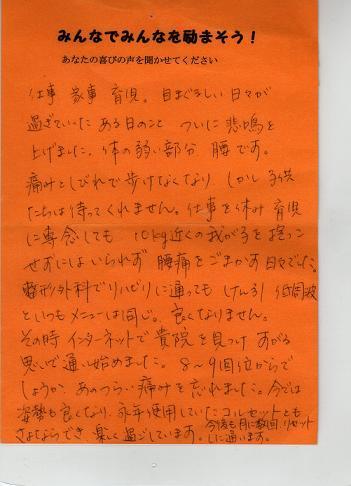 みんなでみんなを励まそう！
あなたの喜びの声を聞かせてください
仕事 家事 育児。目まぐるしい日々が
過ぎていった ある日のこと ついに悲鳴を
上げました。体の弱い部分 腰です。
痛みとしびれで歩けなくなり しかし子供
たちは待ってくれません。仕事を休み 育児
に専念しても 10kg近くの我が子を抱っこ
せずにはいられず 腰痛をごまかす日々でした。
整形外科でリハビリに通っても けん引 低周波
といつもメニューは同じ。良くなりません。
その時 インターネットで貴院を見つけ すがる
思いで通い始めました。8〜9回位からで
しょうか あのつらい痛みを忘れました。今では
姿勢も良くなり、永年使用していたコルセットとも
さよならでき 楽しく過ごしています。今後も月に数回 リセット
しに通います。